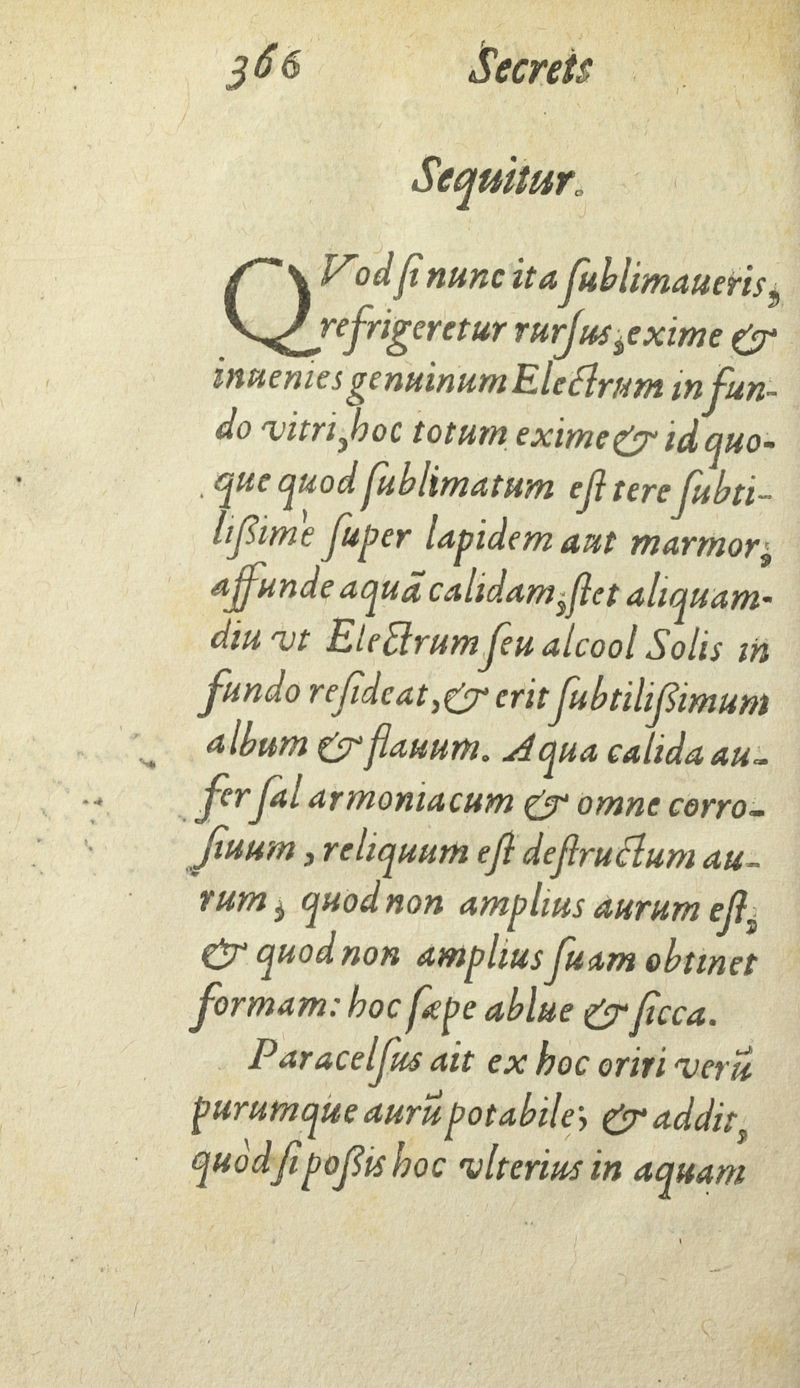 366 Secrets
Sequitur.
QVod ſi nunc ita ſublimaueris,
refrigeretur rurſus, exime &
inuenies genuinum Electrum in fun-
do vitri, hoc totum exime & id quo-
que quod ſublimatum eſt tere ſubti-
lißimè ſuper lapidem aut marmor,
affunde aquã calidam, ſtet aliquam-
diu vt Electrum ſeu alcool Solis in
fundo reſideat, & erit ſubtilißimum
album & flauum. Aqua calida au-
fer ſal armoniacum & omne corro-
ſiuum, reliquum eſt deſtructum au-
rum, quod non amplius aurum eſt,
& quod non amplius ſuam obtinet
formam: hoc ſæpe ablue & ſicca.
Paracelſus ait ex hoc oriri verũ
purumque aurũ potabile; & addit,
quòd ſi poßis hoc vlterius in aquam